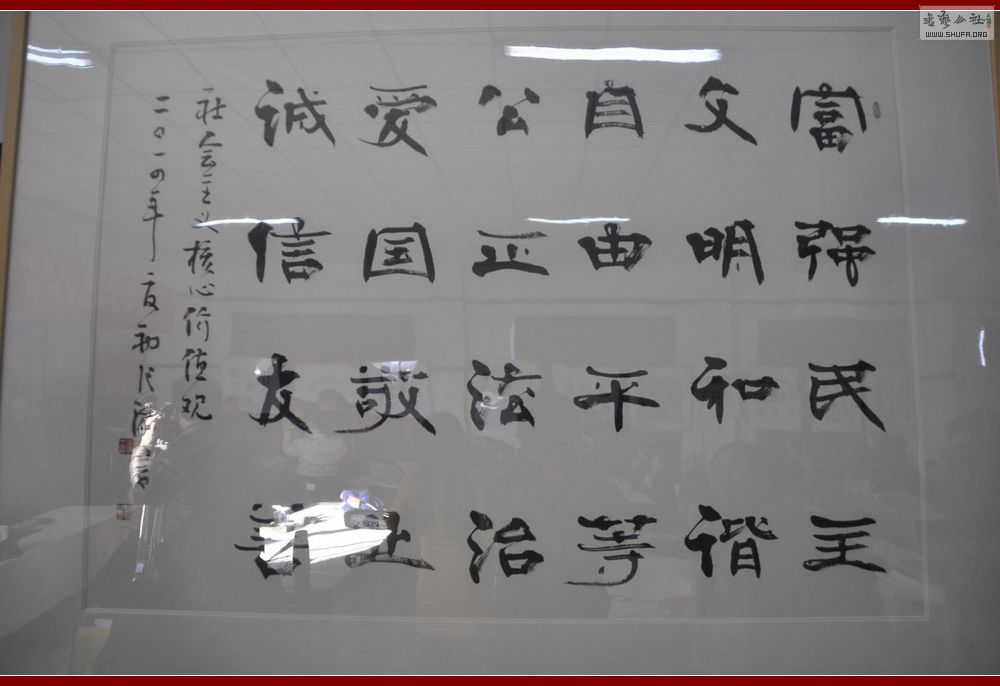 富强民主
文明和谐
自由平等
公正法治
爱国敬业
诚信友善
社会主义核心价值观
二〇一四年
书艺公社
WWW.SHUFA.ORG